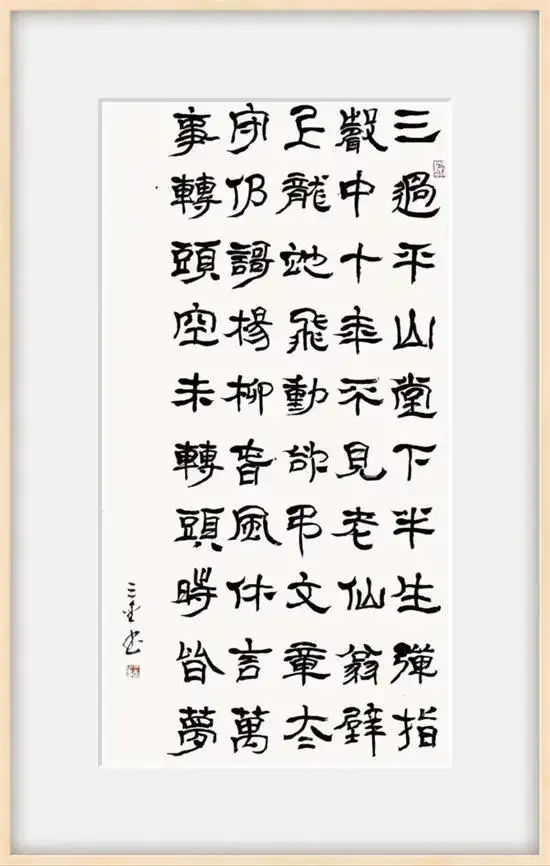 三過平山堂下半生彈指
聲中十年不見老仙翁壁
上龍蛇飛動欲弔文章太
守仍謌楊柳春風休言萬
事轉頭空未轉頭時皆夢